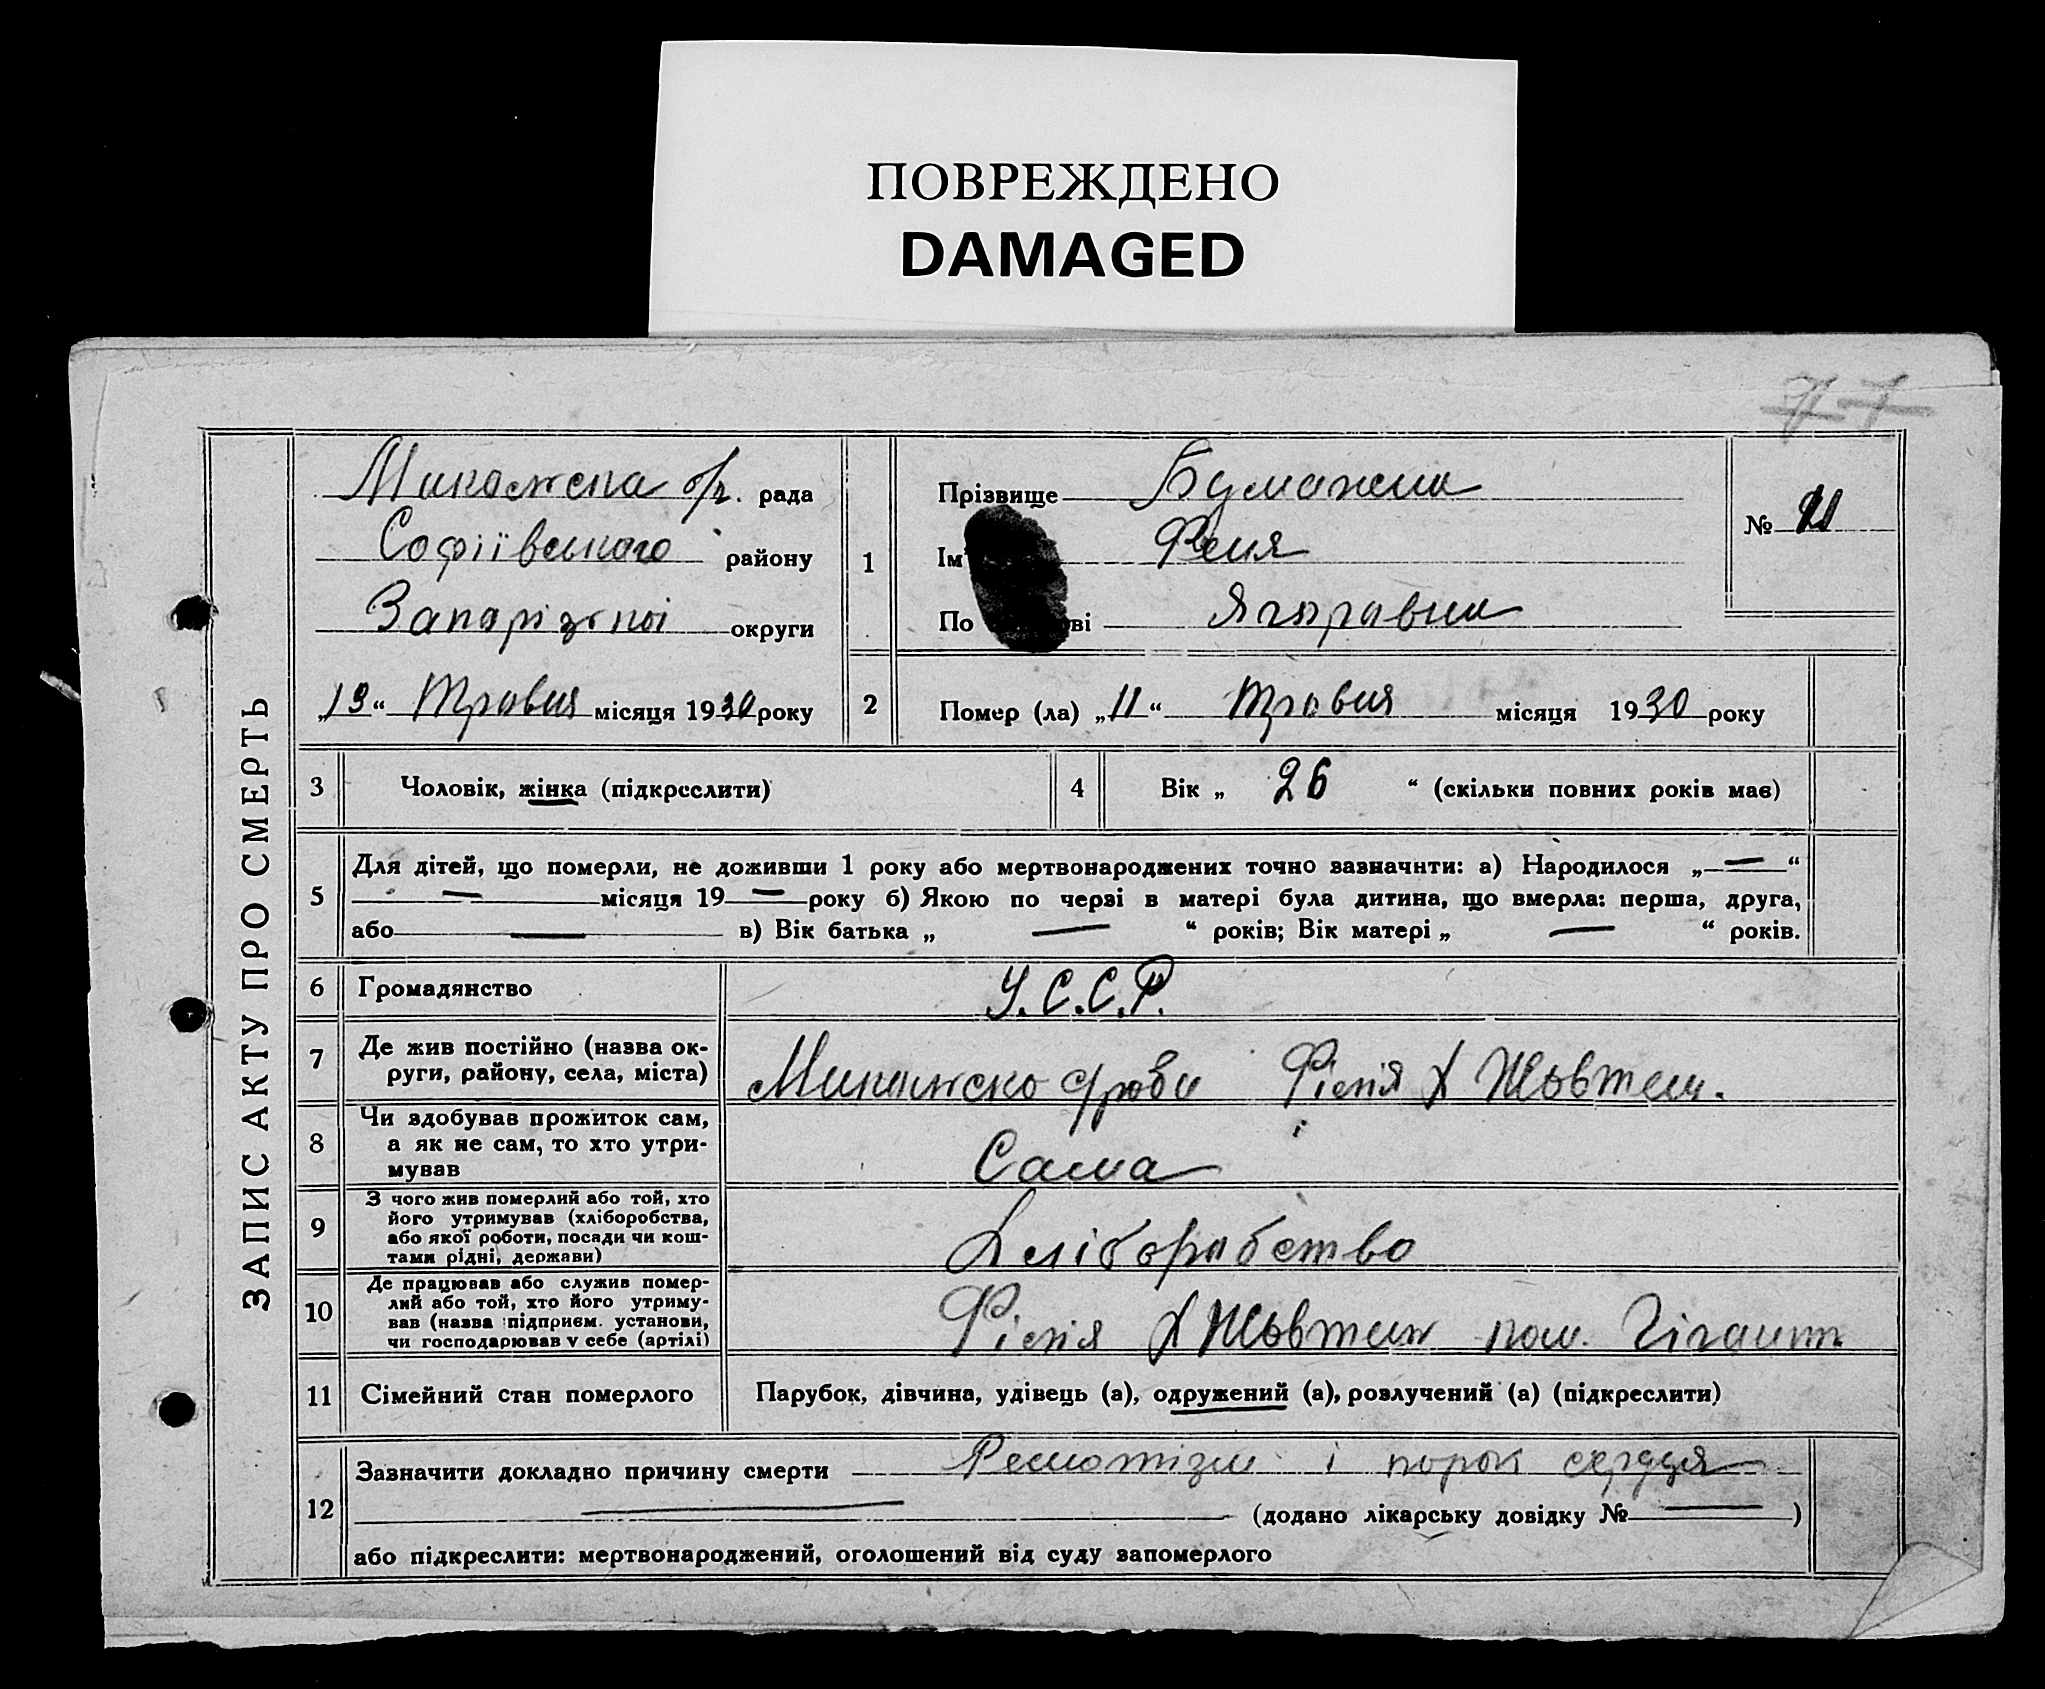 ПОВРЕЖДЕНО
DAMAGED
ЗАПИС АКТУ ПРО СМЕРТЬ
рада
Софіївського району
Запоріжної округи
„13“ Травня місяця 1930 року
1
Прізвище
Ім'
Феня
По ві
Ягоравна
№ 21
2
Помер (ла) „11“ Травня місяця 1930 року
3 Чоловік, жінка (підкреслити)
4 Вік „ 26 “ (скільки повних років має)
5
Для дітей, що померли, не доживши 1 року або мертвонароджених точно зазначити: а) Народилося „—“
— місяця 19—року б) Якою по черзі в матері була дитина, що вмерла: перша, друга,
або — в) Вік батька „ — “ років; Вік матері „ — “ років.
6 Громадянство У.С.С.Р.
7
Де жив постійно (назва ок-
руги, району, села, міста)
Х Жовтень.
8
Чи здобував прожиток сам,
а як не сам, то хто утри-
мував
Сама
9
З чого жив померлий або той, хто
його утримував (хліборобства,
або якої роботи, посади чи кош-
тами рідні, держави)
Хліборабство
10
Де працював або служив помер-
лий або той, хто його утриму-
вав (назва підприєм. установи,
чи господарював у себе (артілі)
Х Жовтень ком. Гігант
11 Сімейний стан померлого Парубок, дівчина, удівець (а), одружений (а), розлучений (а) (підкреслити)
12
Зазначити докладно причину смерти Ревматізм і порок серця
— (додано лікарську довідку № — )
або підкреслити: мертвонароджений, оголошений від суду запомерлого